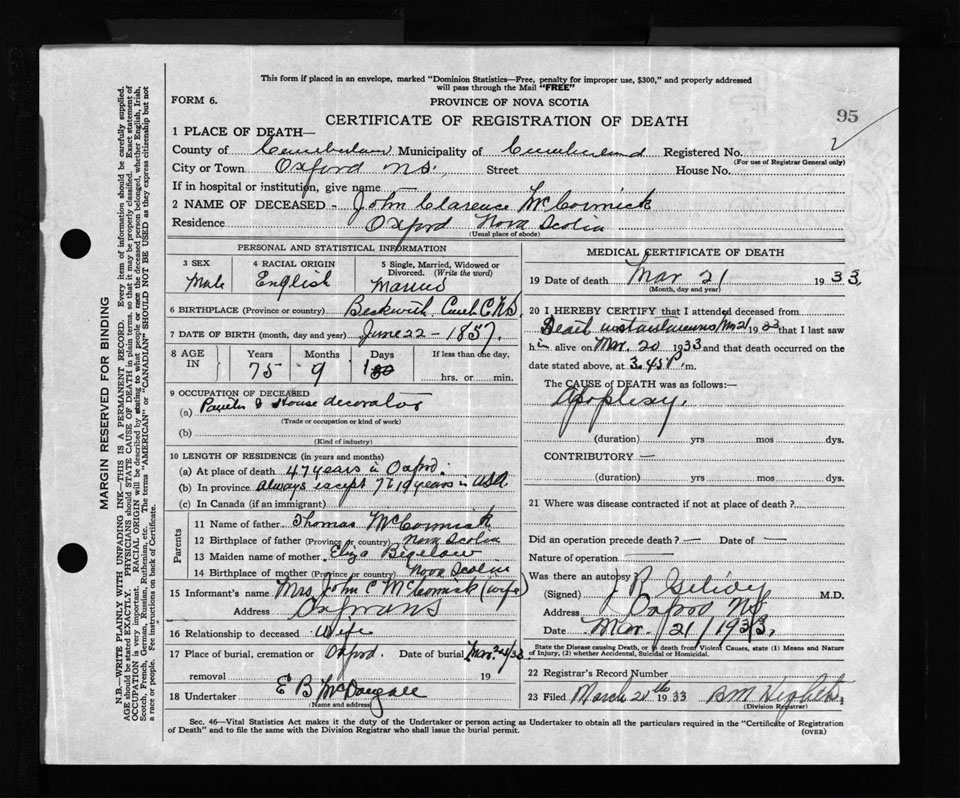 This form if placed in an envelope, marked "Dominion Statistics—Free, penalty for improper use, $300," and properly addressed
will pass through the Mail "FREE"
FORM 6.
PROVINCE OF NOVA SCOTIA
95
CERTIFICATE OF REGISTRATION OF DEATH
1 PLACE OF DEATH—
County of Cumberland Municipality of Cumberland Registered No. 2
(For use of Registrar General only)
City or Town Oxford N.S. Street House No.
If in hospital or institution, give name
2 NAME OF DECEASED - John Clarence McCormick
Residence Oxford Nova Scotia
(Usual place of abode)
PERSONAL AND STATISTICAL INFORMATION
3 SEX Male
4 RACIAL ORIGIN English
5 Single, Married, Widowed or Divorced. (Write the word) Married
6 BIRTHPLACE (Province or country) Beckwith
7 DATE OF BIRTH (month, day and year) June 22 - 1857.
8 AGE IN Years 75 Months 9 Days If less than one day, hrs. or min.
9 OCCUPATION OF DECEASED
(a) Painter & House decorator
(Trade or occupation or kind of work)
(b)
(Kind of industry)
10 LENGTH OF RESIDENCE (in years and months)
(a) At place of death 47 years in Oxford.
(b) In province always except years in
(c) In Canada (if an immigrant)
Parents
11 Name of father Thomas McCormick
12 Birthplace of father (Province or country) Nova Scotia
13 Maiden name of mother Eliza Bigelow
14 Birthplace of mother (Province or country) Nova Scotia
15 Informant's name Mrs John C McCormick (wife)
Address Oxford N S
16 Relationship to deceased Wife
17 Place of burial, cremation or removal Oxford. Date of burial Mar. 24/33 19
18 Undertaker E B McDougall
(Name and address)
MEDICAL CERTIFICATE OF DEATH
19 Date of death Mar 21 1933
(Month, day and year)
20 I HEREBY CERTIFY that I attended deceased from
Death instantaneous Mar 21 1933 that I last saw
him alive on Mar. 20 1933 and that death occurred on the
date stated above, at 3.45 P.m.
The CAUSE of DEATH was as follows:—
Apoplexy.
(duration) yrs mos dys.
CONTRIBUTORY —
(duration) yrs mos dys.
21 Where was disease contracted if not at place of death?
Did an operation precede death? — Date of —
Nature of operation
Was there an autopsy
(Signed) J R M.D.
Address Oxford NS
Date Mar. 21/1933.
State the Disease causing Death, or in death from Violent Causes, state (1) Means and Nature of Injury, (2) whether Accidental, Suicidal or Homicidal.
22 Registrar's Record Number
23 Filed March 1933 B M
(Division Registrar)
Sec. 46—Vital Statistics Act makes it the duty of the Undertaker or person acting as Undertaker to obtain all the particulars required in the "Certificate of Registration
of Death" and to file the same with the Division Registrar who shall issue the burial permit.
(OVER)
MARGIN RESERVED FOR BINDING
N.B.—WRITE PLAINLY WITH UNFADING INK—THIS IS A PERMANENT RECORD. Every item of information should be carefully supplied.
AGE should be stated EXACTLY. PHYSICIANS should STATE CAUSE OF DEATH in plain terms, so that it may be properly classified. Exact statement of
OCCUPATION is very important. RACIAL ORIGIN will be described by stating to what people or race the deceased person belonged, whether English, Irish,
Scotch, French, German, Russian, Ruthenian, etc. The terms "AMERICAN" or "CANADIAN" SHOULD NOT BE USED as they express citizenship but not
a race or people. See instructions on back of Certificate.